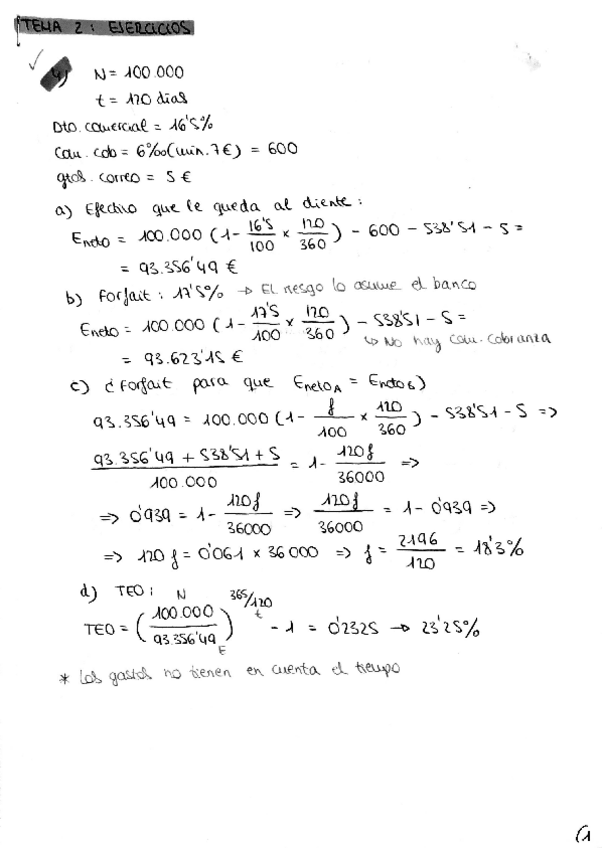 TEMA 2: EJERCICIOS
4) N = 100.000
t = 120 dias
Dto. comercial = 16'5%
Com. cob = 6‰ (min. 7€) = 600
gtos. correo = 5 €
a) Efectivo que le queda al cliente:
Eneto = 100.000 (1 - 16'5/100 × 120/360) - 600 - 538'51 - 5 =
= 93.356'49 €
b) Forfait: 17'5% → El riesgo lo asume el banco
Eneto = 100.000 (1 - 17'5/100 × 120/360) - 538'51 - 5 =
↳ No hay com. cobranza
= 93.623'15 €
c) ¿Forfait para que Eneto A = Eneto B)
93.356'49 = 100.000 (1 - f/100 × 120/360) - 538'51 - 5 =>
93.356'49 + 538'51 + 5 / 100.000 = 1 - 120f/36000 =>
=> 0'939 = 1 - 120f/36000 => 120f/36000 = 1 - 0'939 =>
=> 120 f = 0'061 × 36000 => f = 2196/120 = 18'3%
d) TEO:
TEO = (100.000 N / 93.356'49 E)^365/120 t - 1 = 0'2325 → 23'25%
* Los gastos no tienen en cuenta el tiempo
(1